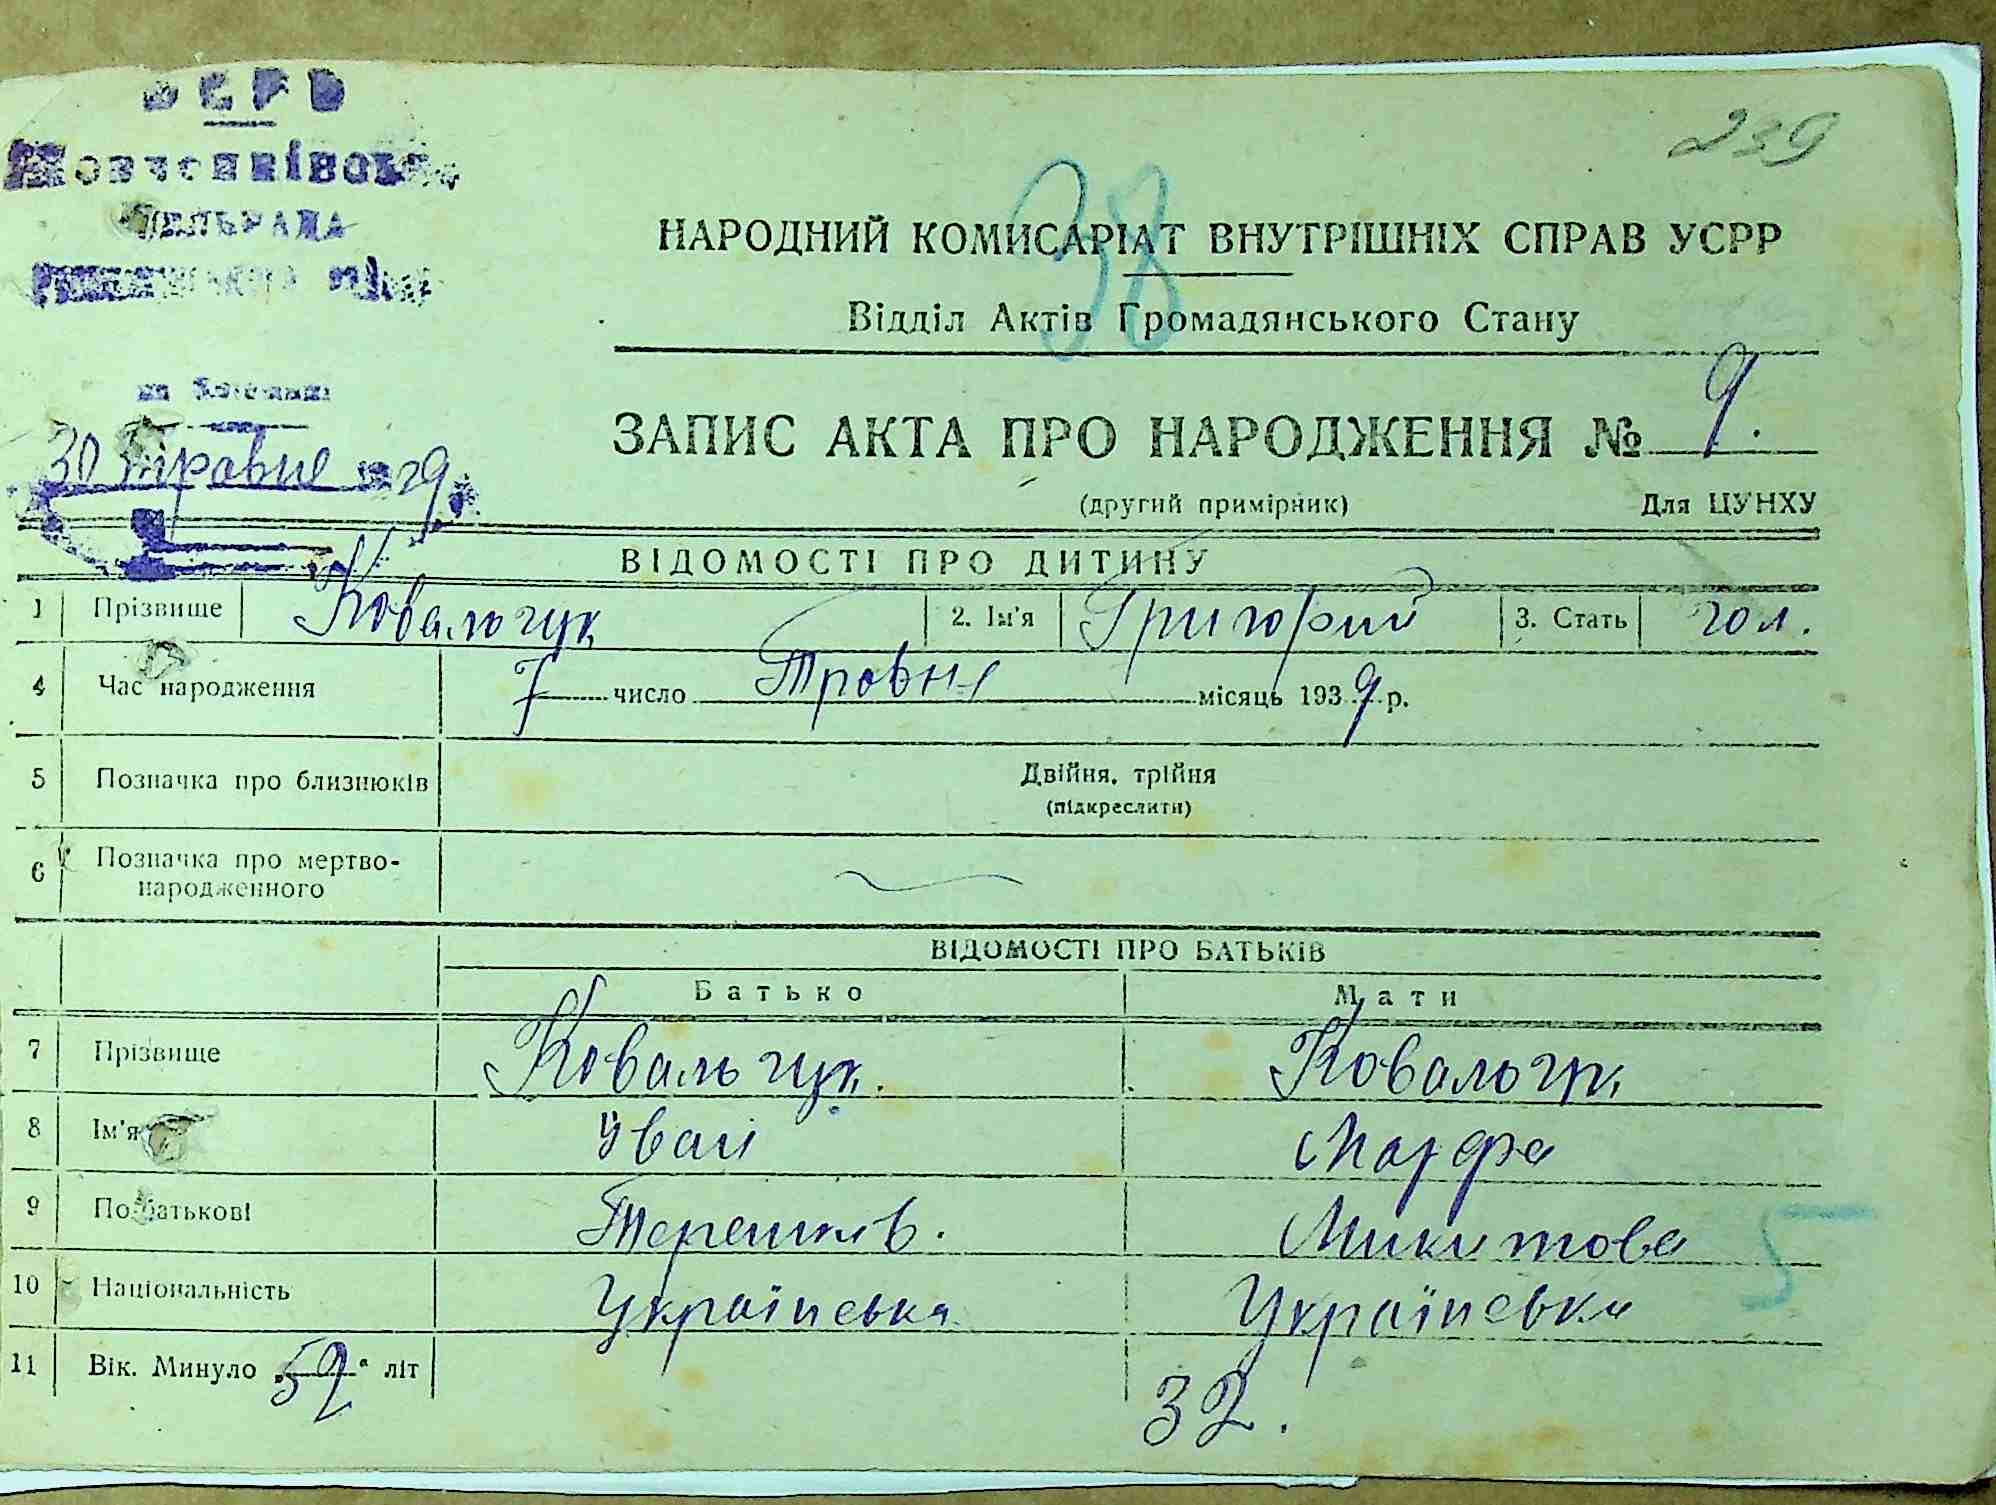 239
38
НАРОДНИЙ КОМІСАРІАТ ВНУТРІШНІХ СПРАВ УСРР
Відділ Актів Громадянського Стану
30 травня 1939
ЗАПИС АКТА ПРО НАРОДЖЕННЯ № 9.
(другий примірник) Для ЦУНХУ
ВІДОМОСТІ ПРО ДИТИНУ
1 Прізвище Ковальчук 2. Ім'я Григорий 3. Стать чол.
4 Час народження 7 число Травня місяць 1939 р.
5 Позначка про близнюків Двійня, трійня
(підкреслити)
6 Позначка про мертво-
народженного
ВІДОМОСТІ ПРО БАТЬКІВ
Батько Мати
7 Прізвище Ковальчук. Ковальчук
8 Ім'я Іван Марфа
9 По батькові Терешків. Микитова
5
10 Національність Українська Українська
11 Вік. Минуло 59 літ 32.